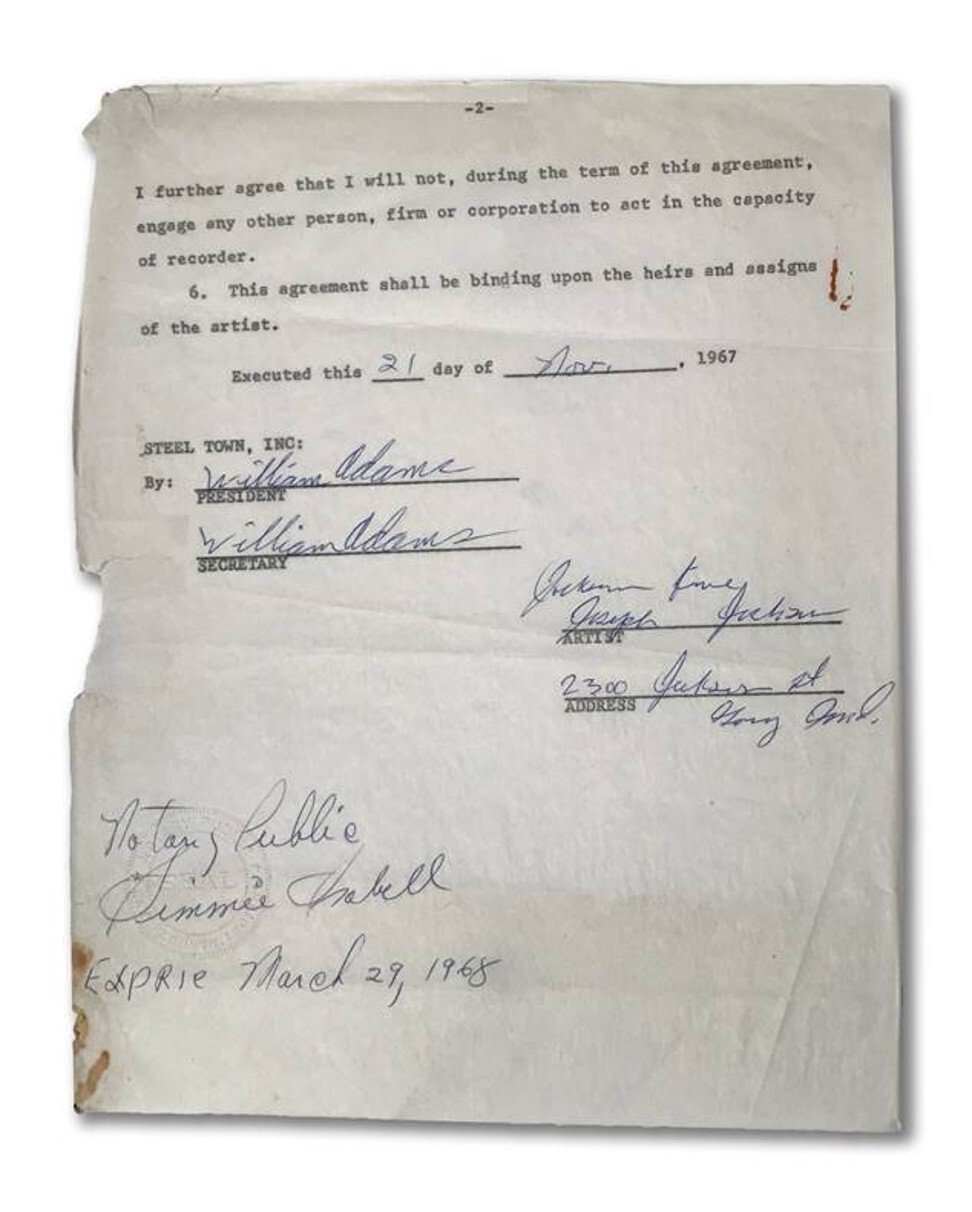 -2-
I further agree that I will not, during the term of this agreement,
engage any other person, firm or corporation to act in the capacity
of recorder.
6. This agreement shall be binding upon the heirs and assigns
of the artist.
Executed this 21 day of Nov. , 1967
STEEL TOWN, INC:
By: William Adams
PRESIDENT
William Adams
SECRETARY
Jackson
Joseph Jackson
ARTIST
2300 Jackson St
ADDRESS
Gary Ind.
Notary Public
SEAL
Jimmie Isabell
Exprie March 29, 1968